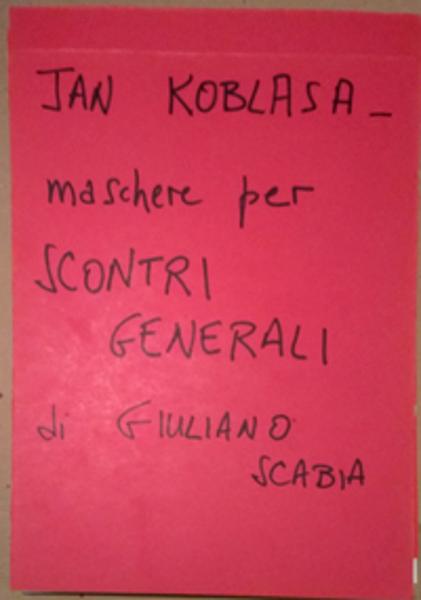 JAN KOBLASA_
maschere per
SCONTRI
GENERALI
di GIULIANO
SCABIA